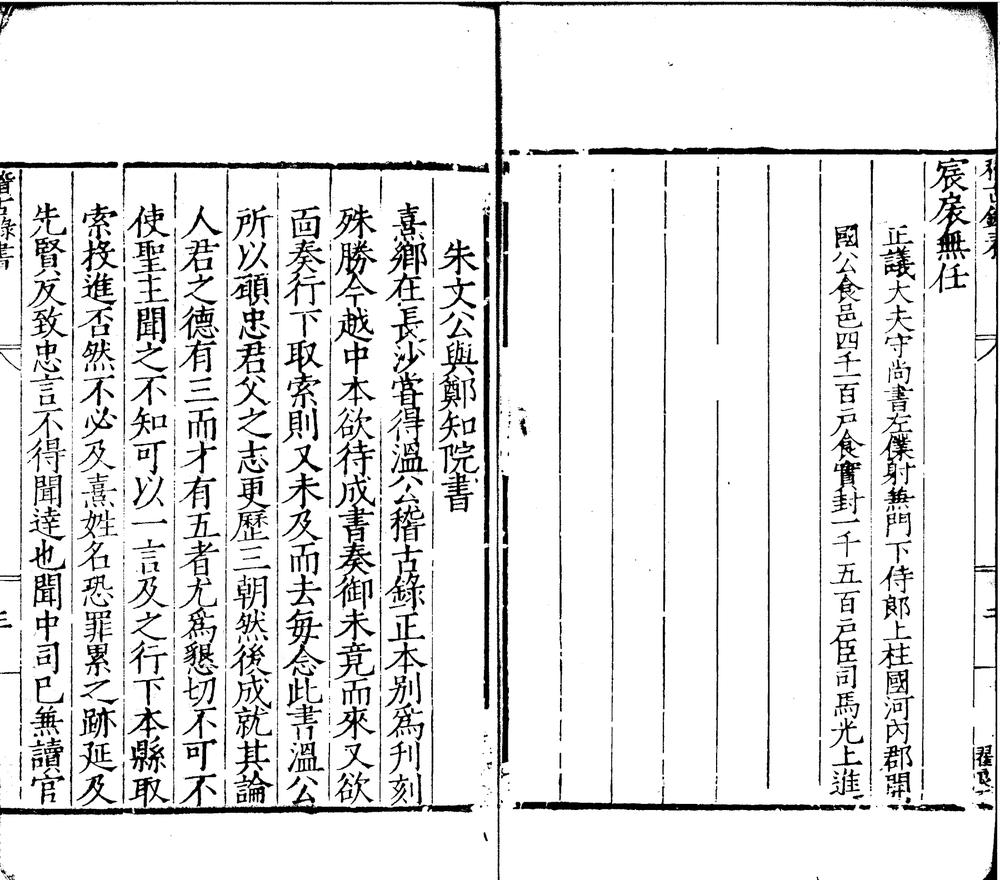 宸扆無任
正議大夫守尚書左僕射兼門下侍郎上柱國河內郡開
國公食邑四千一百戶食實封一千五百戶臣司馬光上進
朱文公與鄭知院書
熹鄉在長沙嘗得溫公稽古錄正本别爲刋刻
殊勝今越中本欲待成書奏御未竟而來又欲
面奏行下取索則又未及而去每念此書溫公
所以願忠君父之志更歷三朝然後成就其論
人君之德有三而才有五者尤爲懇切不可不
使聖主聞之不知可以一言及之行下本縣取
索投進否然不必及熹姓名恐罪累之跡延及
先賢反致忠言不得聞達也聞中司已無讀官
稽古錄書